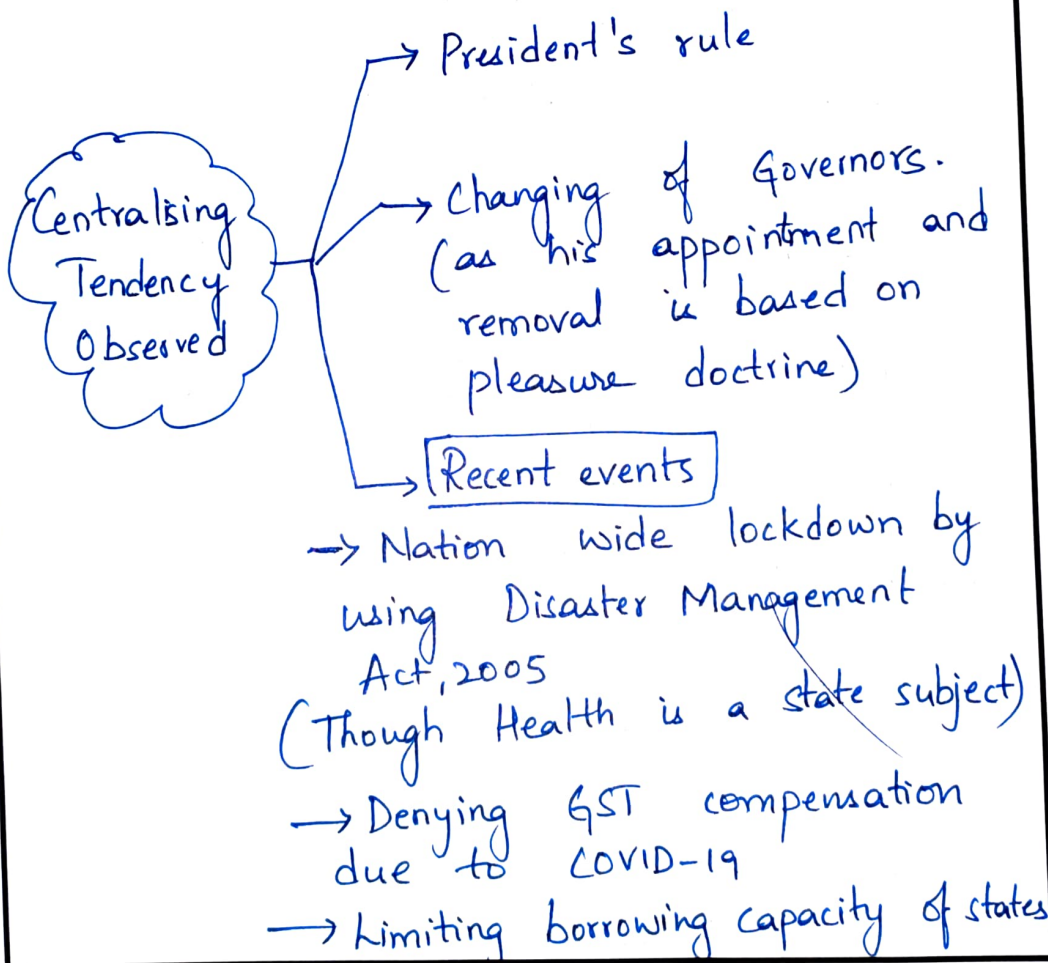 → President's rule
Centralising
Tendency
Observed
→ Changing of Governors.
(as his appointment and
removal is based on
pleasure doctrine)
→ Recent events
→ Nation wide lockdown by
using Disaster Management
Act, 2005
(Though Health is a state subject)
→ Denying GST compensation
due to COVID-19
→ Limiting borrowing capacity of states